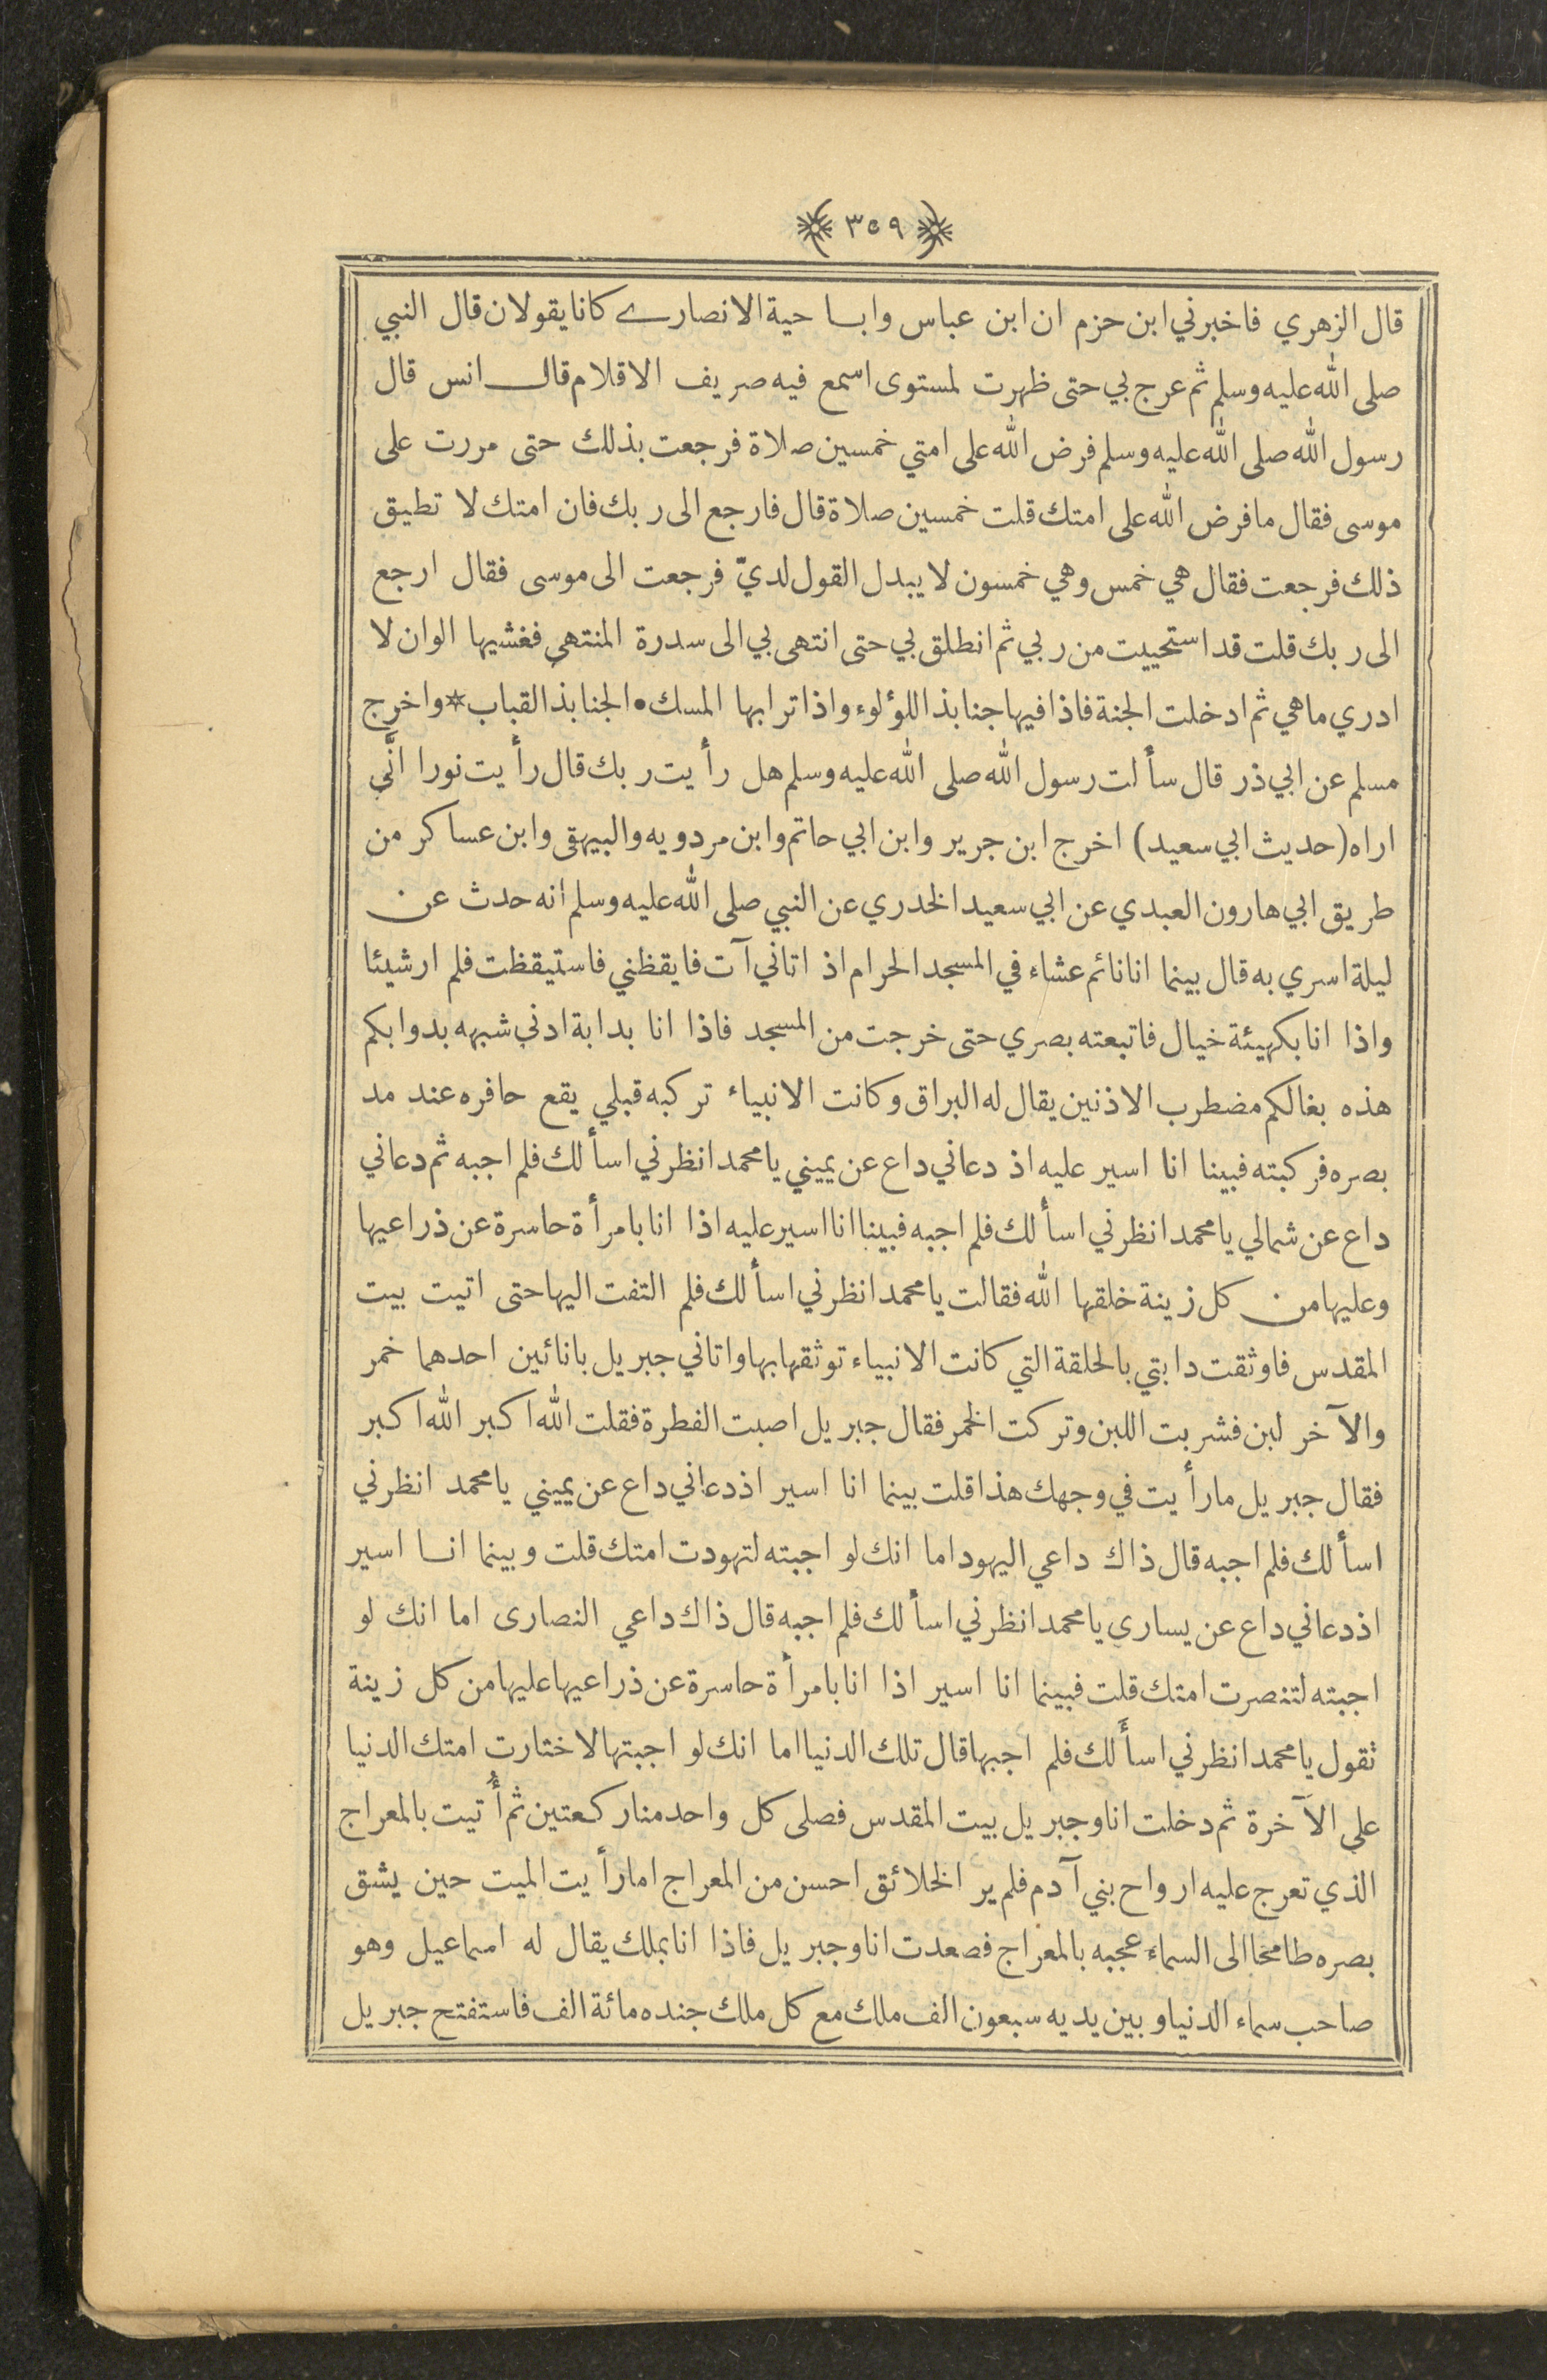 ﴿٣٥٩﴾
قال الزهري فاخبرني ابن حزم ان ابن عباس وابا حية الانصارى كانا يقولان قال النبي
صلى الله عليه وسلم ثم عرج بي حتى ظهرت لمستوى اسمع فيه صريف الاقلام قال انس قال
رسول الله صلى الله عليه وسلم فرض الله على امتي خمسين صلاة فرجعت بذلك حتى مررت على
موسى فقال ما فرض الله على امتك قلت خمسين صلاة قال فارجع الى ربك فان امتك لا تطيق
ذلك فرجعت فقال هي خمس وهي خمسون لا يبدل القول لديّ فرجعت الى موسى فقال ارجع
الى ربك قلت قد استحييت من ربي ثم انطلق بي حتى انتهى بي الى سدرة المنتهى فغشيها الوان لا
ادري ما هي ثم ادخلت الجنة فاذا فيها جنابذ اللؤلوء واذا ترابها المسك • الجنابذ القباب * واخرج
مسلم عن ابي ذر قال سألت رسول الله صلى الله عليه وسلم هل رأيت ربك قال رأيت نورا انَّى
اراه (حديث ابي سعيد) اخرج ابن جرير وابن ابي حاتم وابن مردويه والبيهقى وابن عساكر من
طريق ابي هارون العبدي عن ابي سعيد الخدري عن النبي صلى الله عليه وسلم انه حدث عن
ليلة اسري به قال بينما انا نائم عشاء في المسجد الحرام اذ اتاني آت فايقظني فاستيقظت فلم ار شيئا
واذا انا بكهيئة خيال فاتبعته بصري حتى خرجت من المسجد فاذا انا بدابة ادنى شبهه بدوابكم
هذه بغالكم مضطرب الاذنين يقال له البراق وكانت الانبياء تركبه قبلي يقع حافره عند مد
بصره فركبته فبينا انا اسير عليه اذ دعاني داع عن يميني يا محمد انظرني اسألك فلم اجبه ثم دعاني
داع عن شمالي يا محمد انظرني اسألك فلم اجبه فبينا انا اسير عليه اذا انا بامرأة حاسرة عن ذراعيها
وعليها من كل زينة خلقها الله فقالت يا محمد انظرني اسألك فلم التفت اليها حتى اتيت بيت
المقدس فاوثقت دابتي بالحلقة التي كانت الانبياء توثقها بها واتاني جبريل بانائين احدهما خمر
والآخر لبن فشربت اللبن وتركت الخمر فقال جبريل اصبت الفطرة فقلت الله اكبر الله اكبر
فقال جبريل ما رأيت في وجهك هذا قلت بينما انا اسير اذ دعاني داع عن يميني يا محمد انظرني
اسألك فلم اجبه قال ذاك داعي اليهود اما انك لو اجبته لتهودت امتك قلت وبينما انا اسير
اذ دعاني داع عن يسارى يا محمد انظرني اسألك فلم اجبه قال ذاك داعي النصارى اما انك لو
اجبته لتنصرت امتك قلت فبينما انا اسير اذا انا بامرأة حاسرة عن ذراعيها عليها من كل زينة
تقول يا محمد انظرني اسأَلك فلم اجبها قال تلك الدنيا اما انك لو اجبتها لاختارت امتك الدنيا
على الآخرة ثم دخلت انا وجبريل بيت المقدس فصلى كل واحد منا ركعتين ثم أُتيت بالمعراج
الذي تعرج عليه ارواح بني آدم فلم ير الخلائق احسن من المعراج اما رأيت الميت حين يشق
بصره طامحا الى السماء عجبه بالمعراج فصعدت انا وجبريل فاذا انا بملك يقال له اسماعيل وهو
صاحب سماء الدنيا وبين يديه سبعون الف ملك مع كل ملك جنده مائة الف فاستفتح جبريل